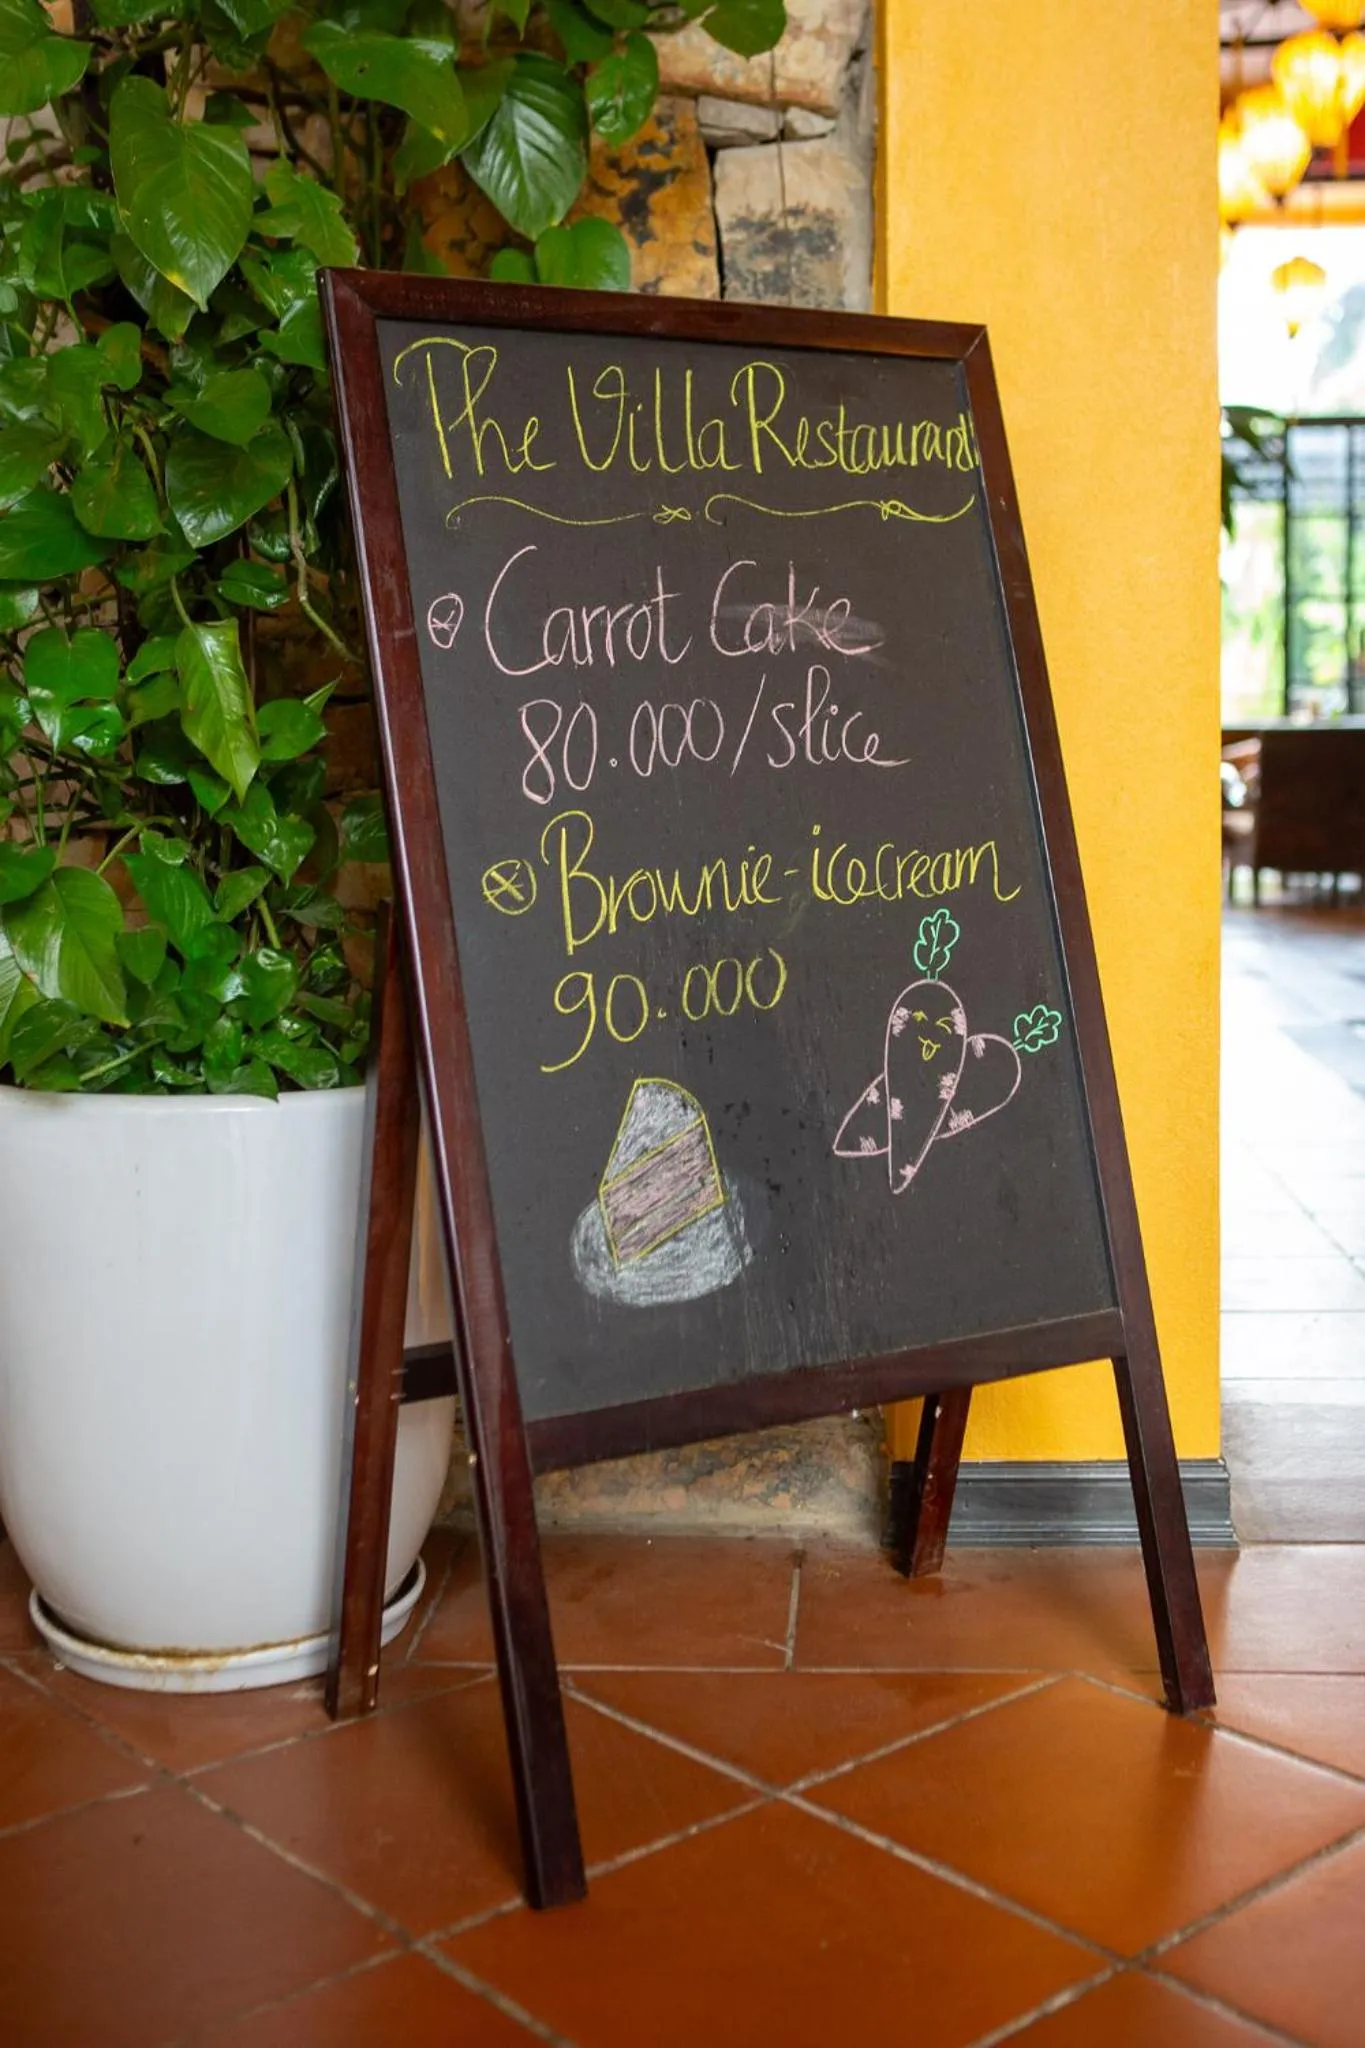 The Villa Restaurant
Carrot Cake
80.000/slice
Brownie-icecream
90.000